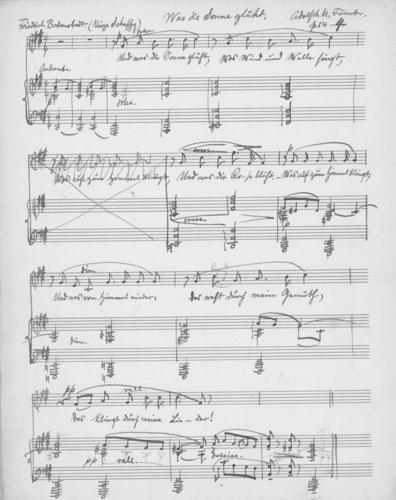 Was die Sonne glüht.
Friedrich Bodenstedt. (Mirza Schaffy)
Adolph M. Foerster.
Op. 54
Andante
Und was die Sonne glüht, Was Wind und Welle singt,
Was auf zum Himmel klingt, Und was die Ro-se blüht - Was auf zum Himmel klingt,
dim
Und was vom Himmel nieder; Das weht durch mein Gemüth,
dim.
pp rall.
Das klingt durch meine Lie-der!
pp rall.